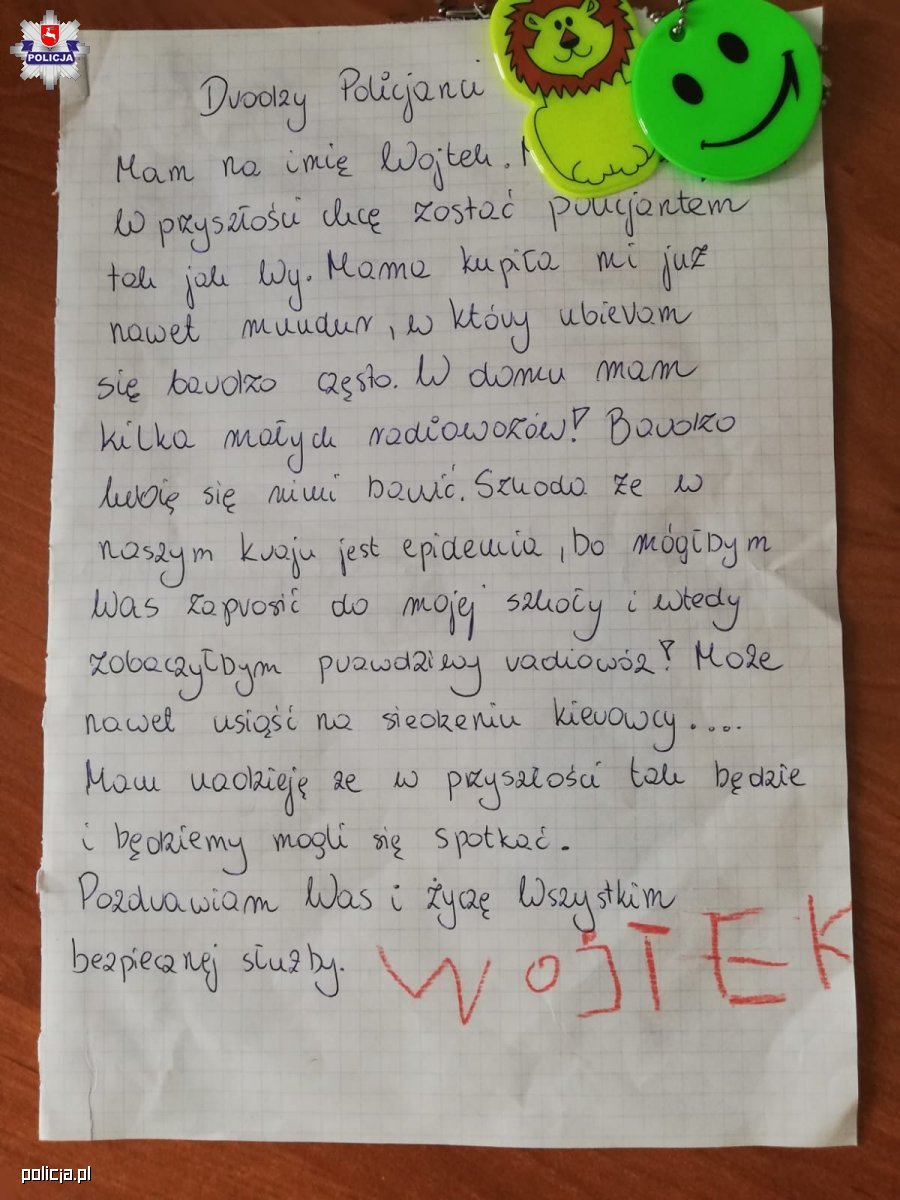 POLICJA
Drodzy Policjanci
Mam na imię Wojtek.
W przyszłości chcę zostać policjantem
tak jak Wy. Mama kupiła mi już
nawet mundur, w który ubieram
się bardzo często. W domu mam
kilka małych radiowozów! Bardzo
lubię się nimi bawić. Szkoda że w
naszym kraju jest epidemia, bo mógłbym
Was zaprosić do mojej szkoły i wtedy
zobaczyłbym prawdziwy radiowóz! Może
nawet usiąść na siedzeniu kierowcy....
Mam nadzieję że w przyszłości tak będzie
i będziemy mogli się spotkać.
Pozdrawiam Was i życzę Wszystkim
bezpiecznej służby. WOJTEK
policja.pl